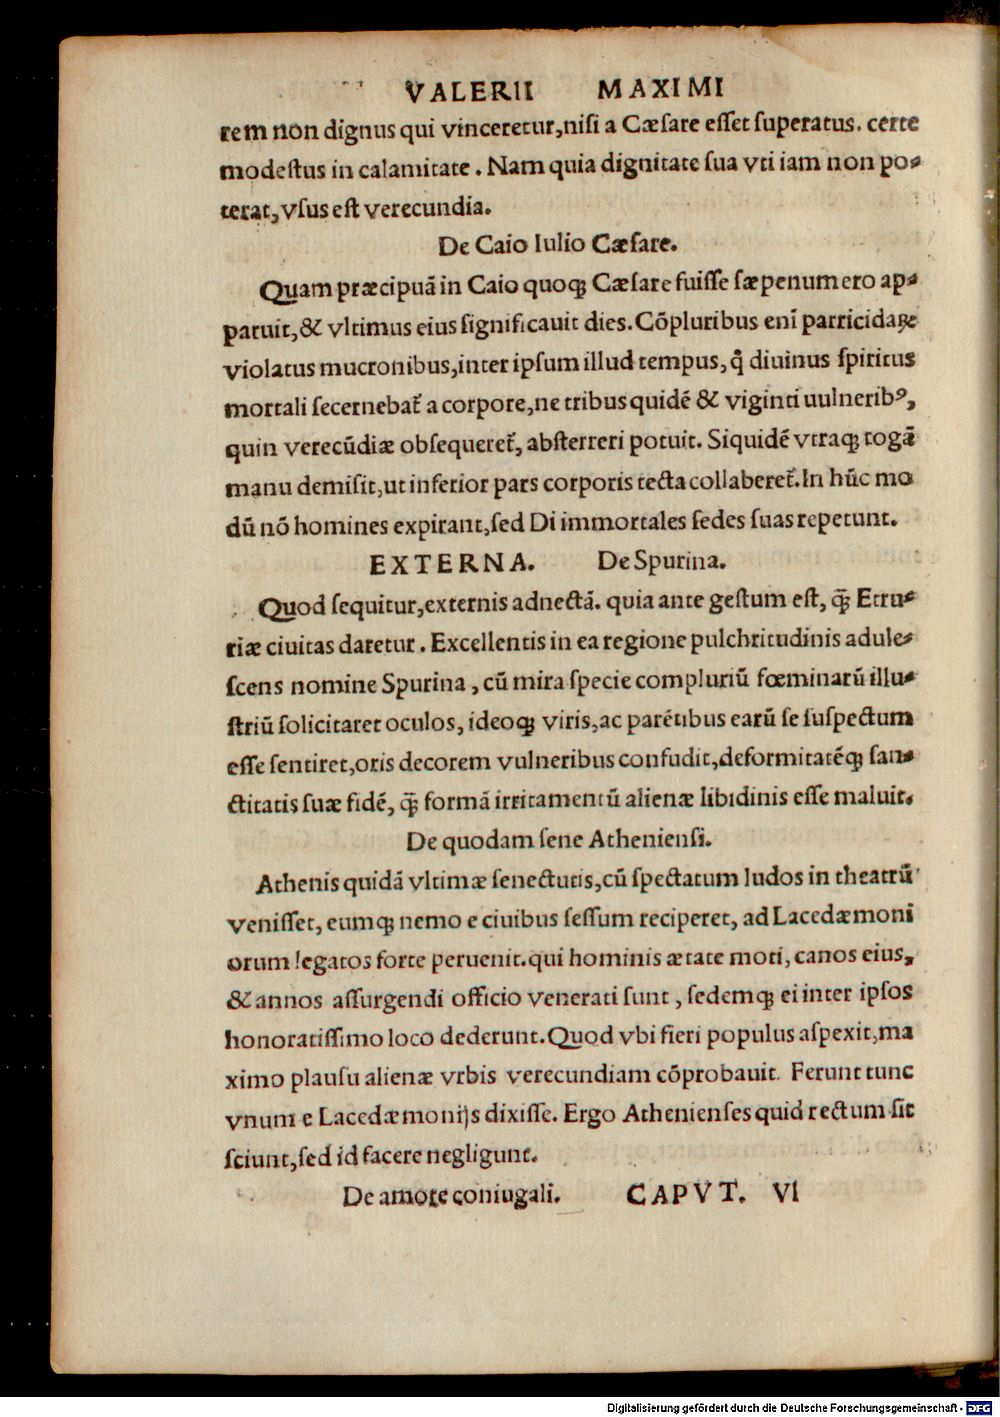 VALERII MAXIMI
rem non dignus qui vinceretur,nisi a Cæsare esset superatus. certe
modestus in calamitate. Nam quia dignitate sua vti iam non po-
terat,vsus est verecundia.
De Caio Iulio Cæsare.
Quam præcipuā in Caio quoqꝫ Cæsare fuisse sæpenumero ap-
paruit,& vltimus eius significauit dies. Cōpluribus enī parricidaꝝ
violatus mucronibus,inter ipsum illud tempus,q̊ diuinus spiritus
mortali secernebat᷑ a corpore,ne tribus quidē & viginti uulneribꝰ,
quin verecūdiæ obsequeret᷑, absterreri potuit. Siquidē vtraqꝫ togā
manu demisit,ut inferior pars corporis tecta collaberet᷑.In hūc mo
dū nō homines expirant,sed Di immortales sedes suas repetunt.
EXTERNA. De Spurina.
Quod sequitur,externis adnectā. quia ante gestum est, q̄ꝫ Etru-
riæ ciuitas daretur. Excellentis in ea regione pulchritudinis adule-
scens nomine Spurina, cū mira specie compluriū fœminarū illu-
striū solicitaret oculos, ideoqꝫ viris,ac parētibus earū se suspectum
esse sentiret,oris decorem vulneribus confudit,deformitatēqꝫ san-
ctitatis suæ fidē, q̄ꝫ formā irritamentū alienæ libidinis esse maluit.
De quodam sene Atheniensi.
Athenis quidā vltimæ senectutis,cū spectatum ludos in theatrū
venisset, eumqꝫ nemo e ciuibus sessum reciperet, ad Lacedæmoni
orum legatos forte peruenit.qui hominis ætate moti, canos eius,
& annos assurgendi officio venerati sunt, sedemqꝫ ei inter ipsos
honoratissimo loco dederunt.Quod vbi fieri populus aspexit,ma
ximo plausu alienæ vrbis verecundiam cōprobauit. Ferunt tunc
vnum e Lacedæmonijs dixisse. Ergo Athenienses quid rectum sit
sciunt,sed id facere negligunt.
De amore coniugali. CAPVT. VI
Digitalisierung gefördert durch die Deutsche Forschungsgemeinschaft - DFG